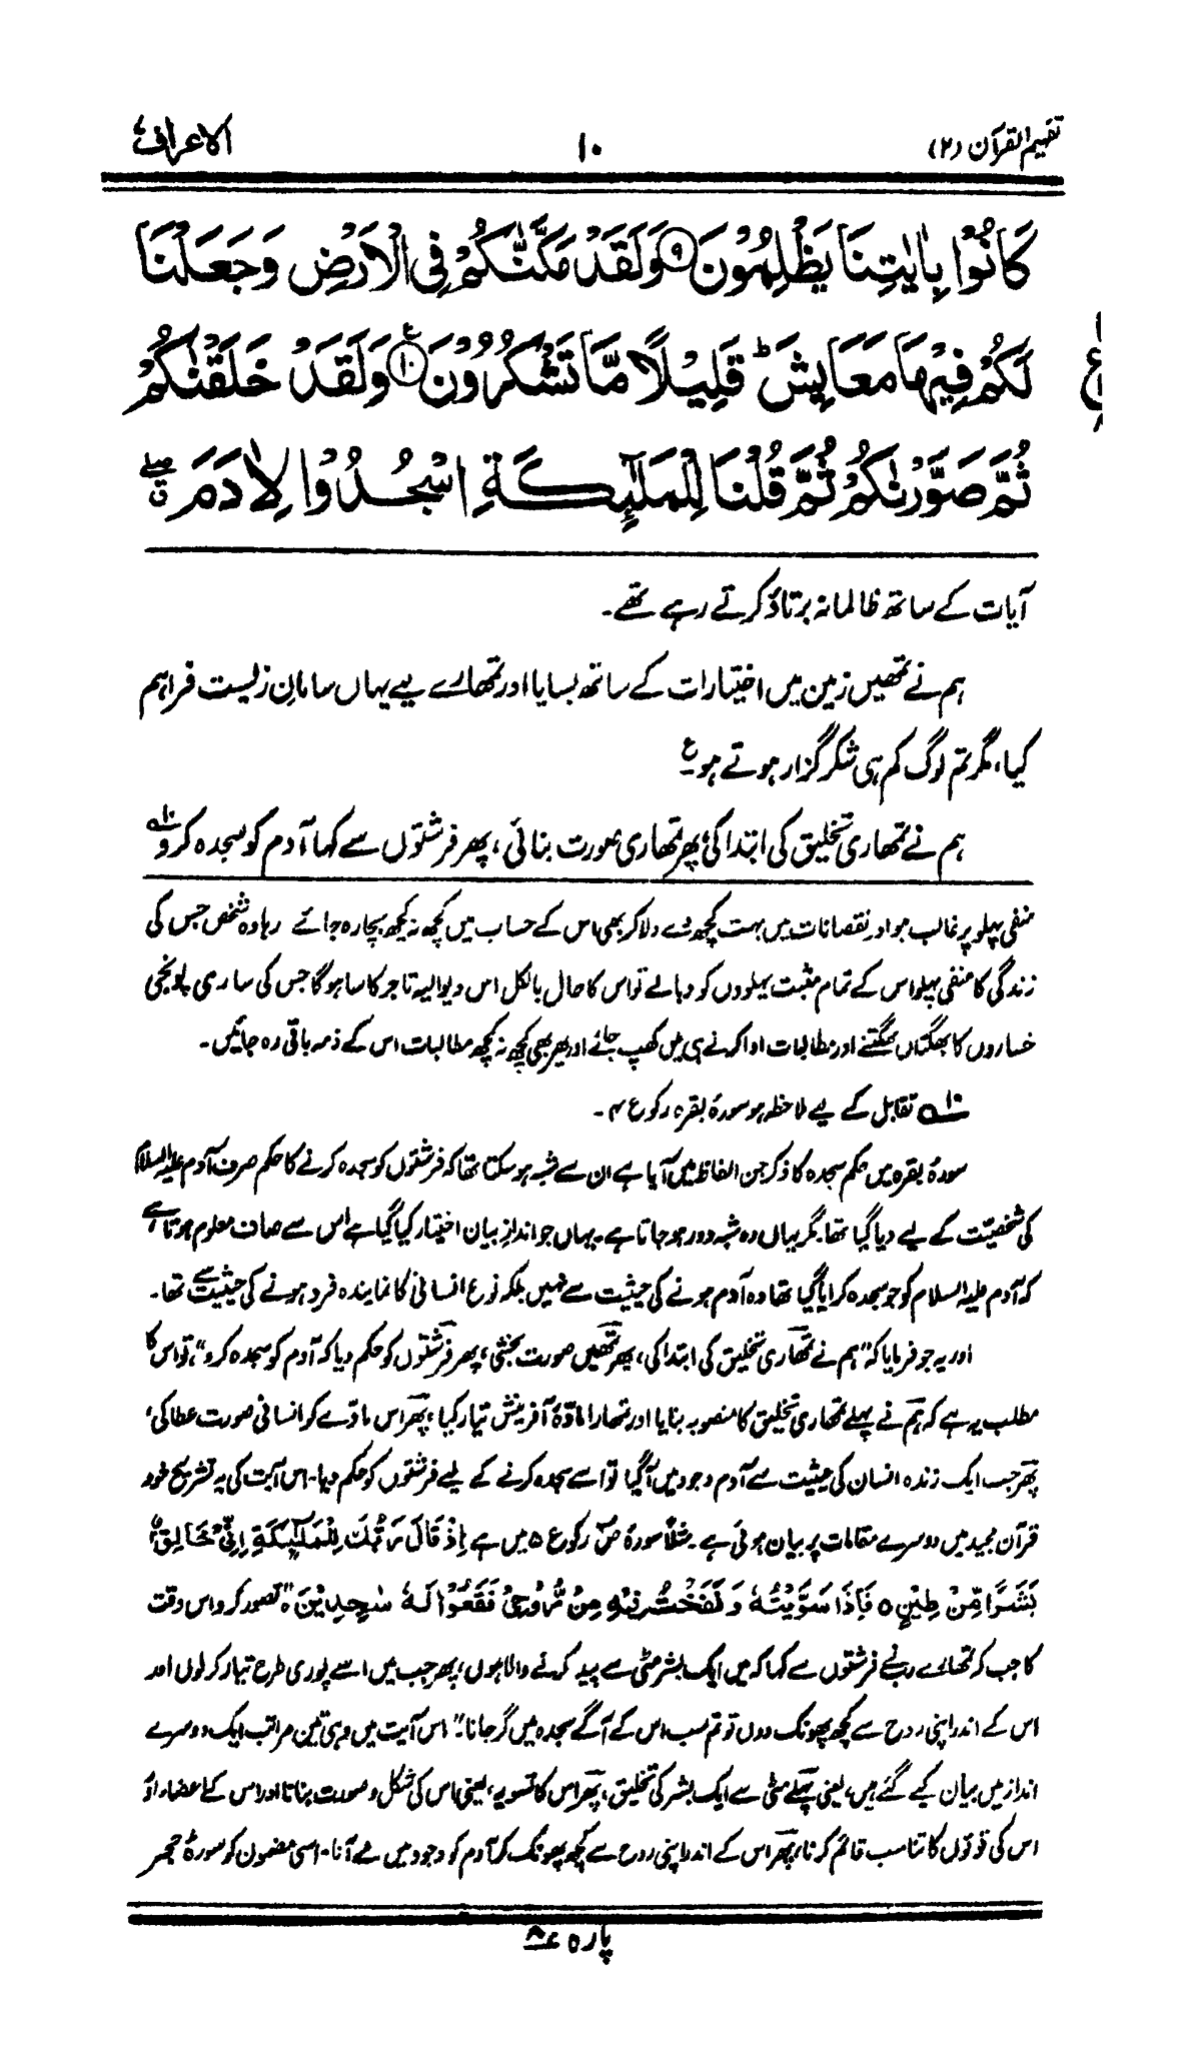 تفہیم القرآن (۲)
۱۰
الاعراف ۷
كَانُوْا بِاٰيٰتِنَا يَظْلِمُوْنَ ۹ وَلَقَدْ مَكَّنّٰكُمْ فِى الْاَرْضِ وَجَعَلْنَا
لَكُمْ فِيْهَا مَعَايِشَ ؕ قَلِيْلًا مَّا تَشْكُرُوْنَ ۱۰ ع وَلَقَدْ خَلَقْنٰكُمْ
ع
ثُمَّ صَوَّرْنٰكُمْ ثُمَّ قُلْنَا لِلْمَلٰٓئِكَةِ اسْجُدُوْا لِاٰدَمَ
آیات کے ساتھ ظالمانہ برتاؤ کرتے رہے تھے۔
ہم نے تمھیں زمین میں اختیارات کے ساتھ بسایا اور تمھارے لیے یہاں سامانِ زیست فراہم
کیا، مگر تم لوگ کم ہی شکر گزار ہوتے ہو۔ ع
ہم نے تمھاری تخلیق کی ابتدا کی، پھر تمھاری صورت بنائی، پھر فرشتوں سے کہا آدم کو سجدہ کرو۱۰
منفی پہلو پر غالب ہو اور نقصانات میں بہت کچھ دے دلا کر بھی اس کے حساب میں کچھ نہ کچھ بچا رہ جائے رہا وہ شخص جس کی
زندگی کا منفی پہلو اس کے تمام مثبت پہلووں کو دبا لے تو اس کا حال بالکل اس دیوالیہ تاجر کا سا ہوگا جس کی ساری پونجی
خساروں کا بھگتان بھگتنے اور مطالبات ادا کرنے ہی میں کھپ جائے اور پھر بھی کچھ نہ کچھ مطالبات اس کے ذمہ باقی رہ جائیں۔
۱۰ تقابل کے لیے ملاحظہ ہو سورۂ بقرہ رکوع ۴۔
سورۂ بقرہ میں حکم سجدہ کا ذکر جن الفاظ میں آیا ہے ان سے شبہ ہو سکتا تھا کہ فرشتوں کو سجدہ کرنے کا حکم صرف آدم علیہ السلام
کی شخصیّت کے لیے دیا گیا تھا۔ مگر یہاں وہ شبہ دور ہو جاتا ہے۔ یہاں جو اندازِ بیان اختیار کیا گیا ہے اس سے صاف معلوم ہوتا ہے
کہ آدم علیہ السلام کو جو سجدہ کرایا گیا تھا وہ آدم ہونے کی حیثیت سے نہیں بلکہ نوع انسانی کا نمایندہ فرد ہونے کی حیثیت سے تھا۔
اور یہ جو فرمایا کہ "ہم نے تمھاری تخلیق کی ابتدا کی، پھر تمھیں صورت بخشی، پھر فرشتوں کو حکم دیا کہ آدم کو سجدہ کرو"، تو اس کا
مطلب یہ ہے کہ ہم نے پہلے تمھاری تخلیق کا منصوبہ بنایا اور تمھارا مادّۂ آفرینش تیار کیا، پھر اس مادّے کو انسانی صورت عطا کی،
پھر جب ایک زندہ انسان کی حیثیت سے آدم وجود میں آگیا تو اسے سجدہ کرنے کے لیے فرشتوں کو حکم دیا۔ اس آیت کی یہ تشریح خود
قرآن مجید میں دوسرے مقامات پر بیان ہوئی ہے۔ مثلاً سورۂ صٓ رکوع ۵ میں ہے اِذْ قَالَ رَبُّكَ لِلْمَلٰٓئِكَةِ اِنِّىْ خَالِقٌۢ
بَشَرًا مِّنْ طِيْنٍ ۝ فَاِذَا سَوَّيْتُهٗ وَنَفَخْتُ فِيْهِ مِنْ رُّوْحِىْ فَقَعُوْا لَهٗ سٰجِدِيْنَ ۝ "تصور کرو اس وقت
کا جب کہ تمھارے رب نے فرشتوں سے کہا کہ میں ایک بشر مٹی سے پیدا کرنے والا ہوں، پھر جب میں اسے پوری طرح تیار کر لوں اور
اس کے اندر اپنی روح سے کچھ پھونک دوں تو تم سب اس کے آگے سجدہ میں گر جانا"۔ اس آیت میں وہی تین مراتب ایک دوسرے
انداز میں بیان کیے گئے ہیں، یعنی پہلے مٹی سے ایک بشر کی تخلیق، پھر اس کا تسویہ، یعنی اس کی شکل و صورت بنانا اور اس کے اعضاء اور
اس کی قوتوں کا تناسب قائم کرنا، پھر اس کے اندر اپنی روح سے کچھ پھونک کر آدم کو وجود میں لے آنا۔ اسی مضمون کو سورۂ حجر
پارہ ۸